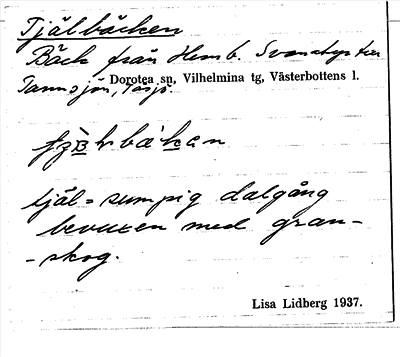 Tjälbäcken
Bäck från Hemb. Svanatjärn
Tannsjön, Tåsjö.
Dorotea sn, Vilhelmina tg, Västerbottens l.
tjäl = sumpig dalgång
bevuxen med gran-
-skog.
Lisa Lidberg 1937.